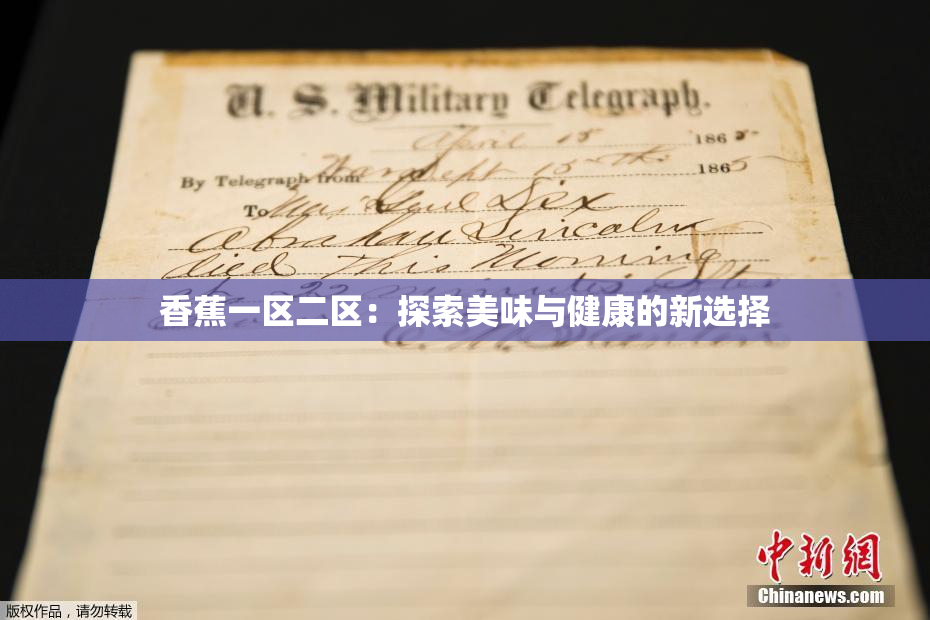 U. S. Military Telegraph.
April 15 1865
By Telegraph from War Dept 15th 1865
To Maj Genl Dix
Abraham Lincoln
died This Morning
at 22 minutes after
香蕉一区二区：探索美味与健康的新选择
E. M. Stanton
中新网
Chinanews.com
版权作品，请勿转载